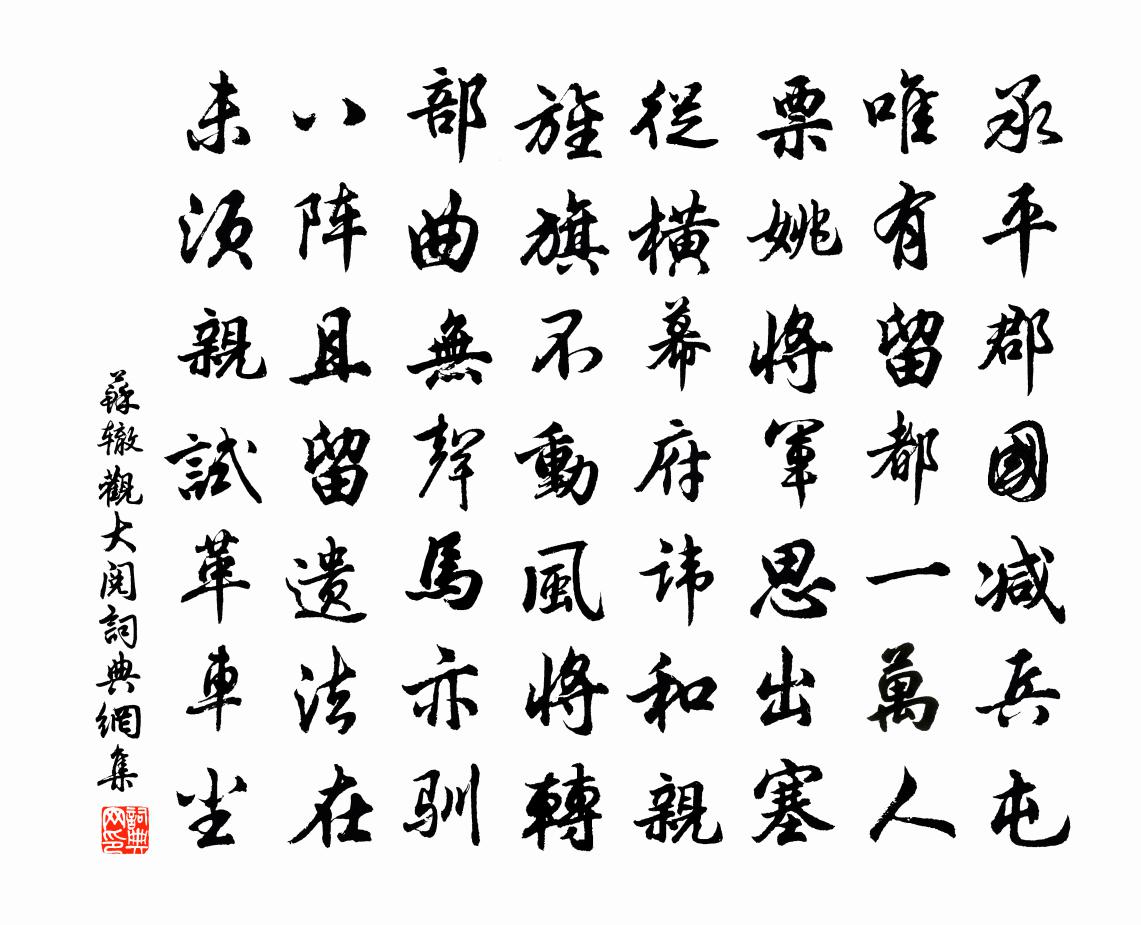 承平郡國减兵屯
唯有留都一萬人
票姚將軍思出塞
從橫幕府讳和親
旌旗不動風將轉
部曲無聲馬亦驯
八阵且留遺法在
未須親試革車尘
蘇辙觀大閱詞典網集
詞典网印